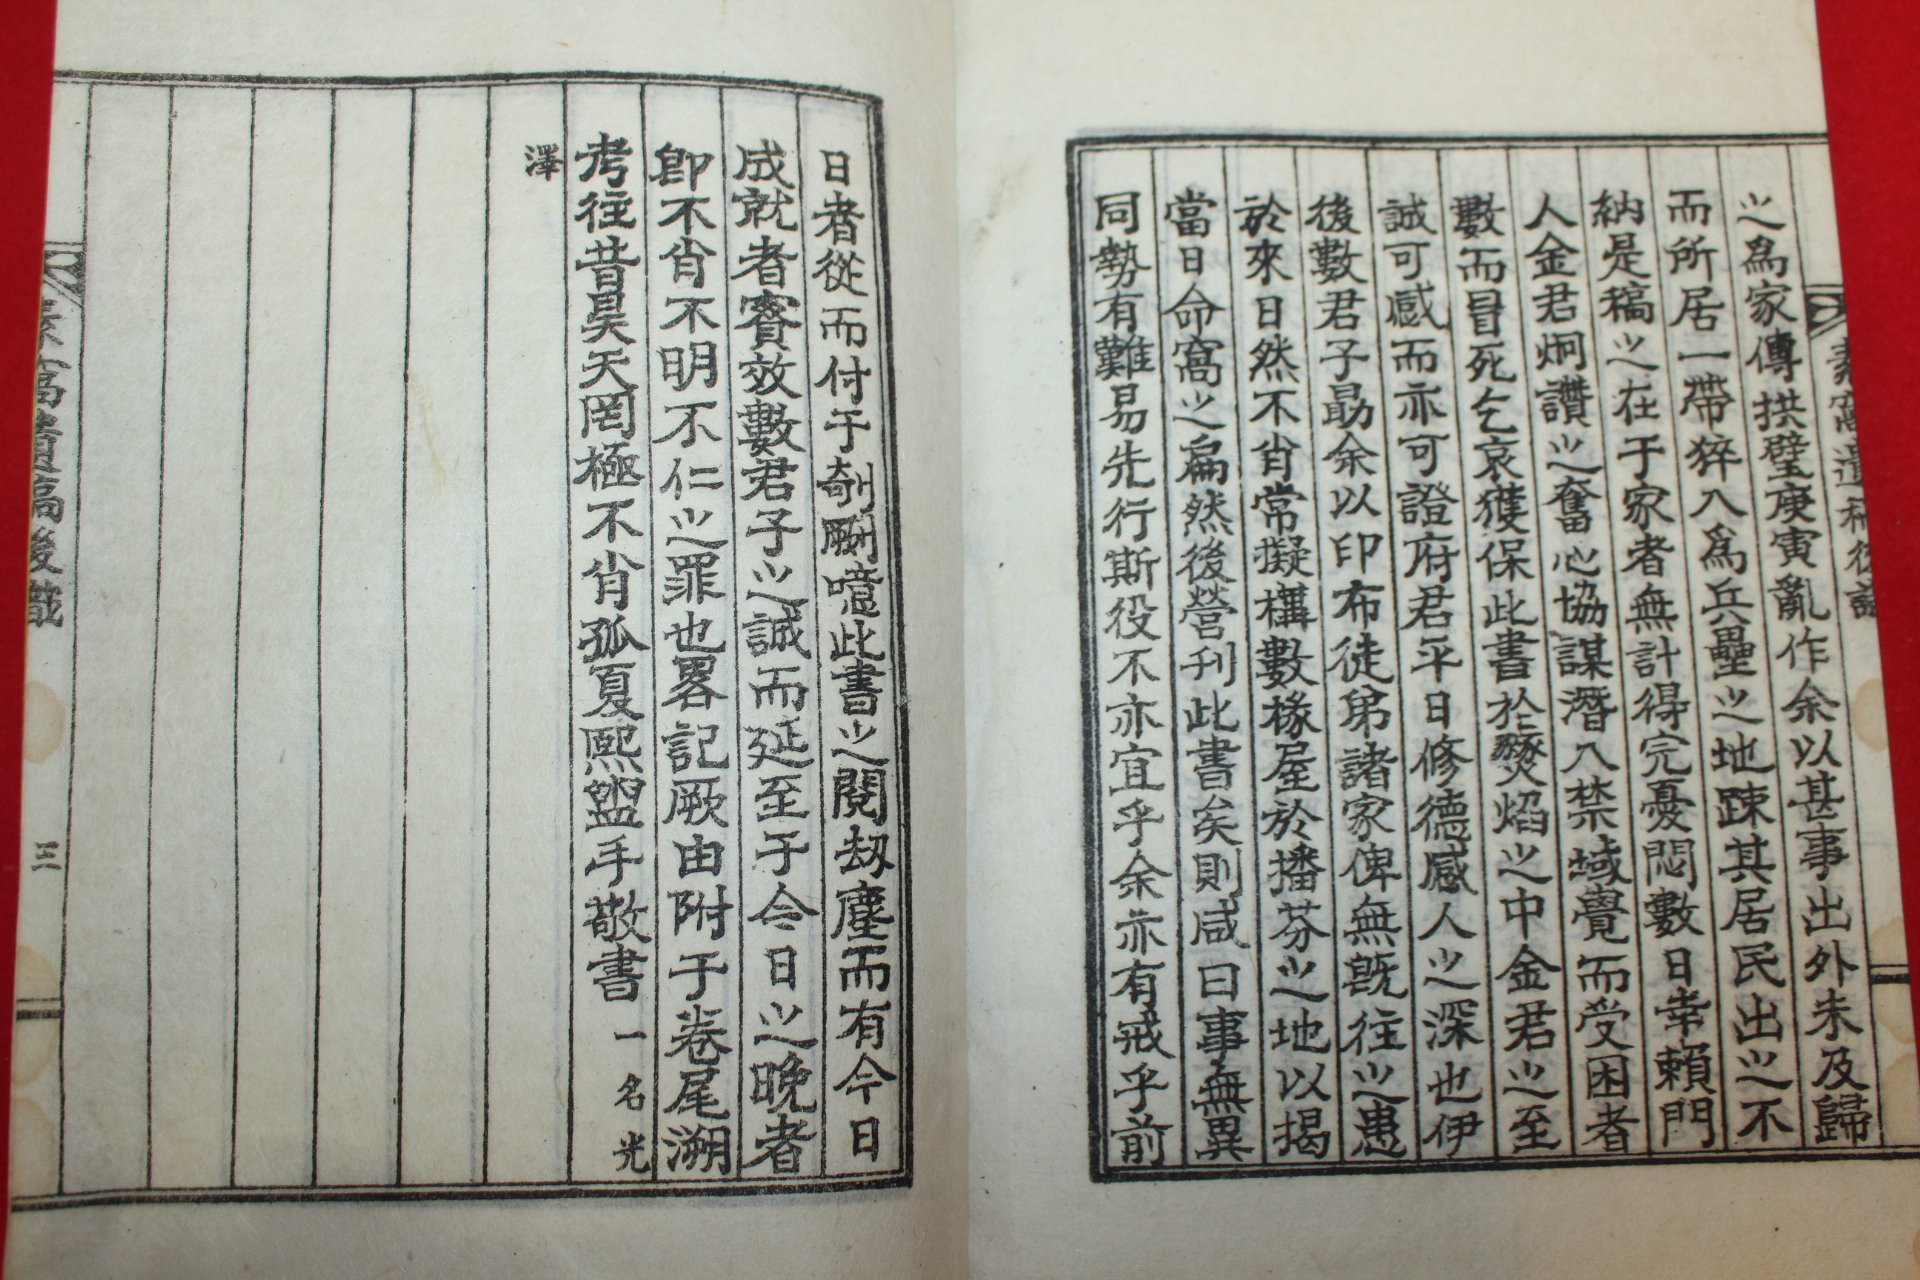 之爲家傳拱璧庚寅亂作余以甚事出外未及歸
而所居一帶猝入爲兵壘之地踈其居民出之不
納是稿之在于家者無計得完憂悶數日幸賴門
人金君炯讚之奮心協謀潛入禁域覺而受困者
數而冒死乞哀獲保此書於燹焰之中金君之至
誠可感而亦可證府君平日修德感人之深也伊
後數君子勗余以印布徒弟諸家俾無旣往之患
於來日然不肖常擬構數椽屋於播芬之地以揭
當日命窩之扁然後營刊此書矣則咸曰事無異
同勢有難易先行斯役不亦宜乎余亦有戒乎前
日者從而付于剞劂噫此書之閱劫塵而有今日
成就者賽效數君子之誠而延至于今日之晩者
卽不肖不明不仁之罪也畧記厥由附于卷尾溯
考往昔昊天罔極不肖孤夏熙盥手敬書 一名光
澤
窩遺稿後識
三